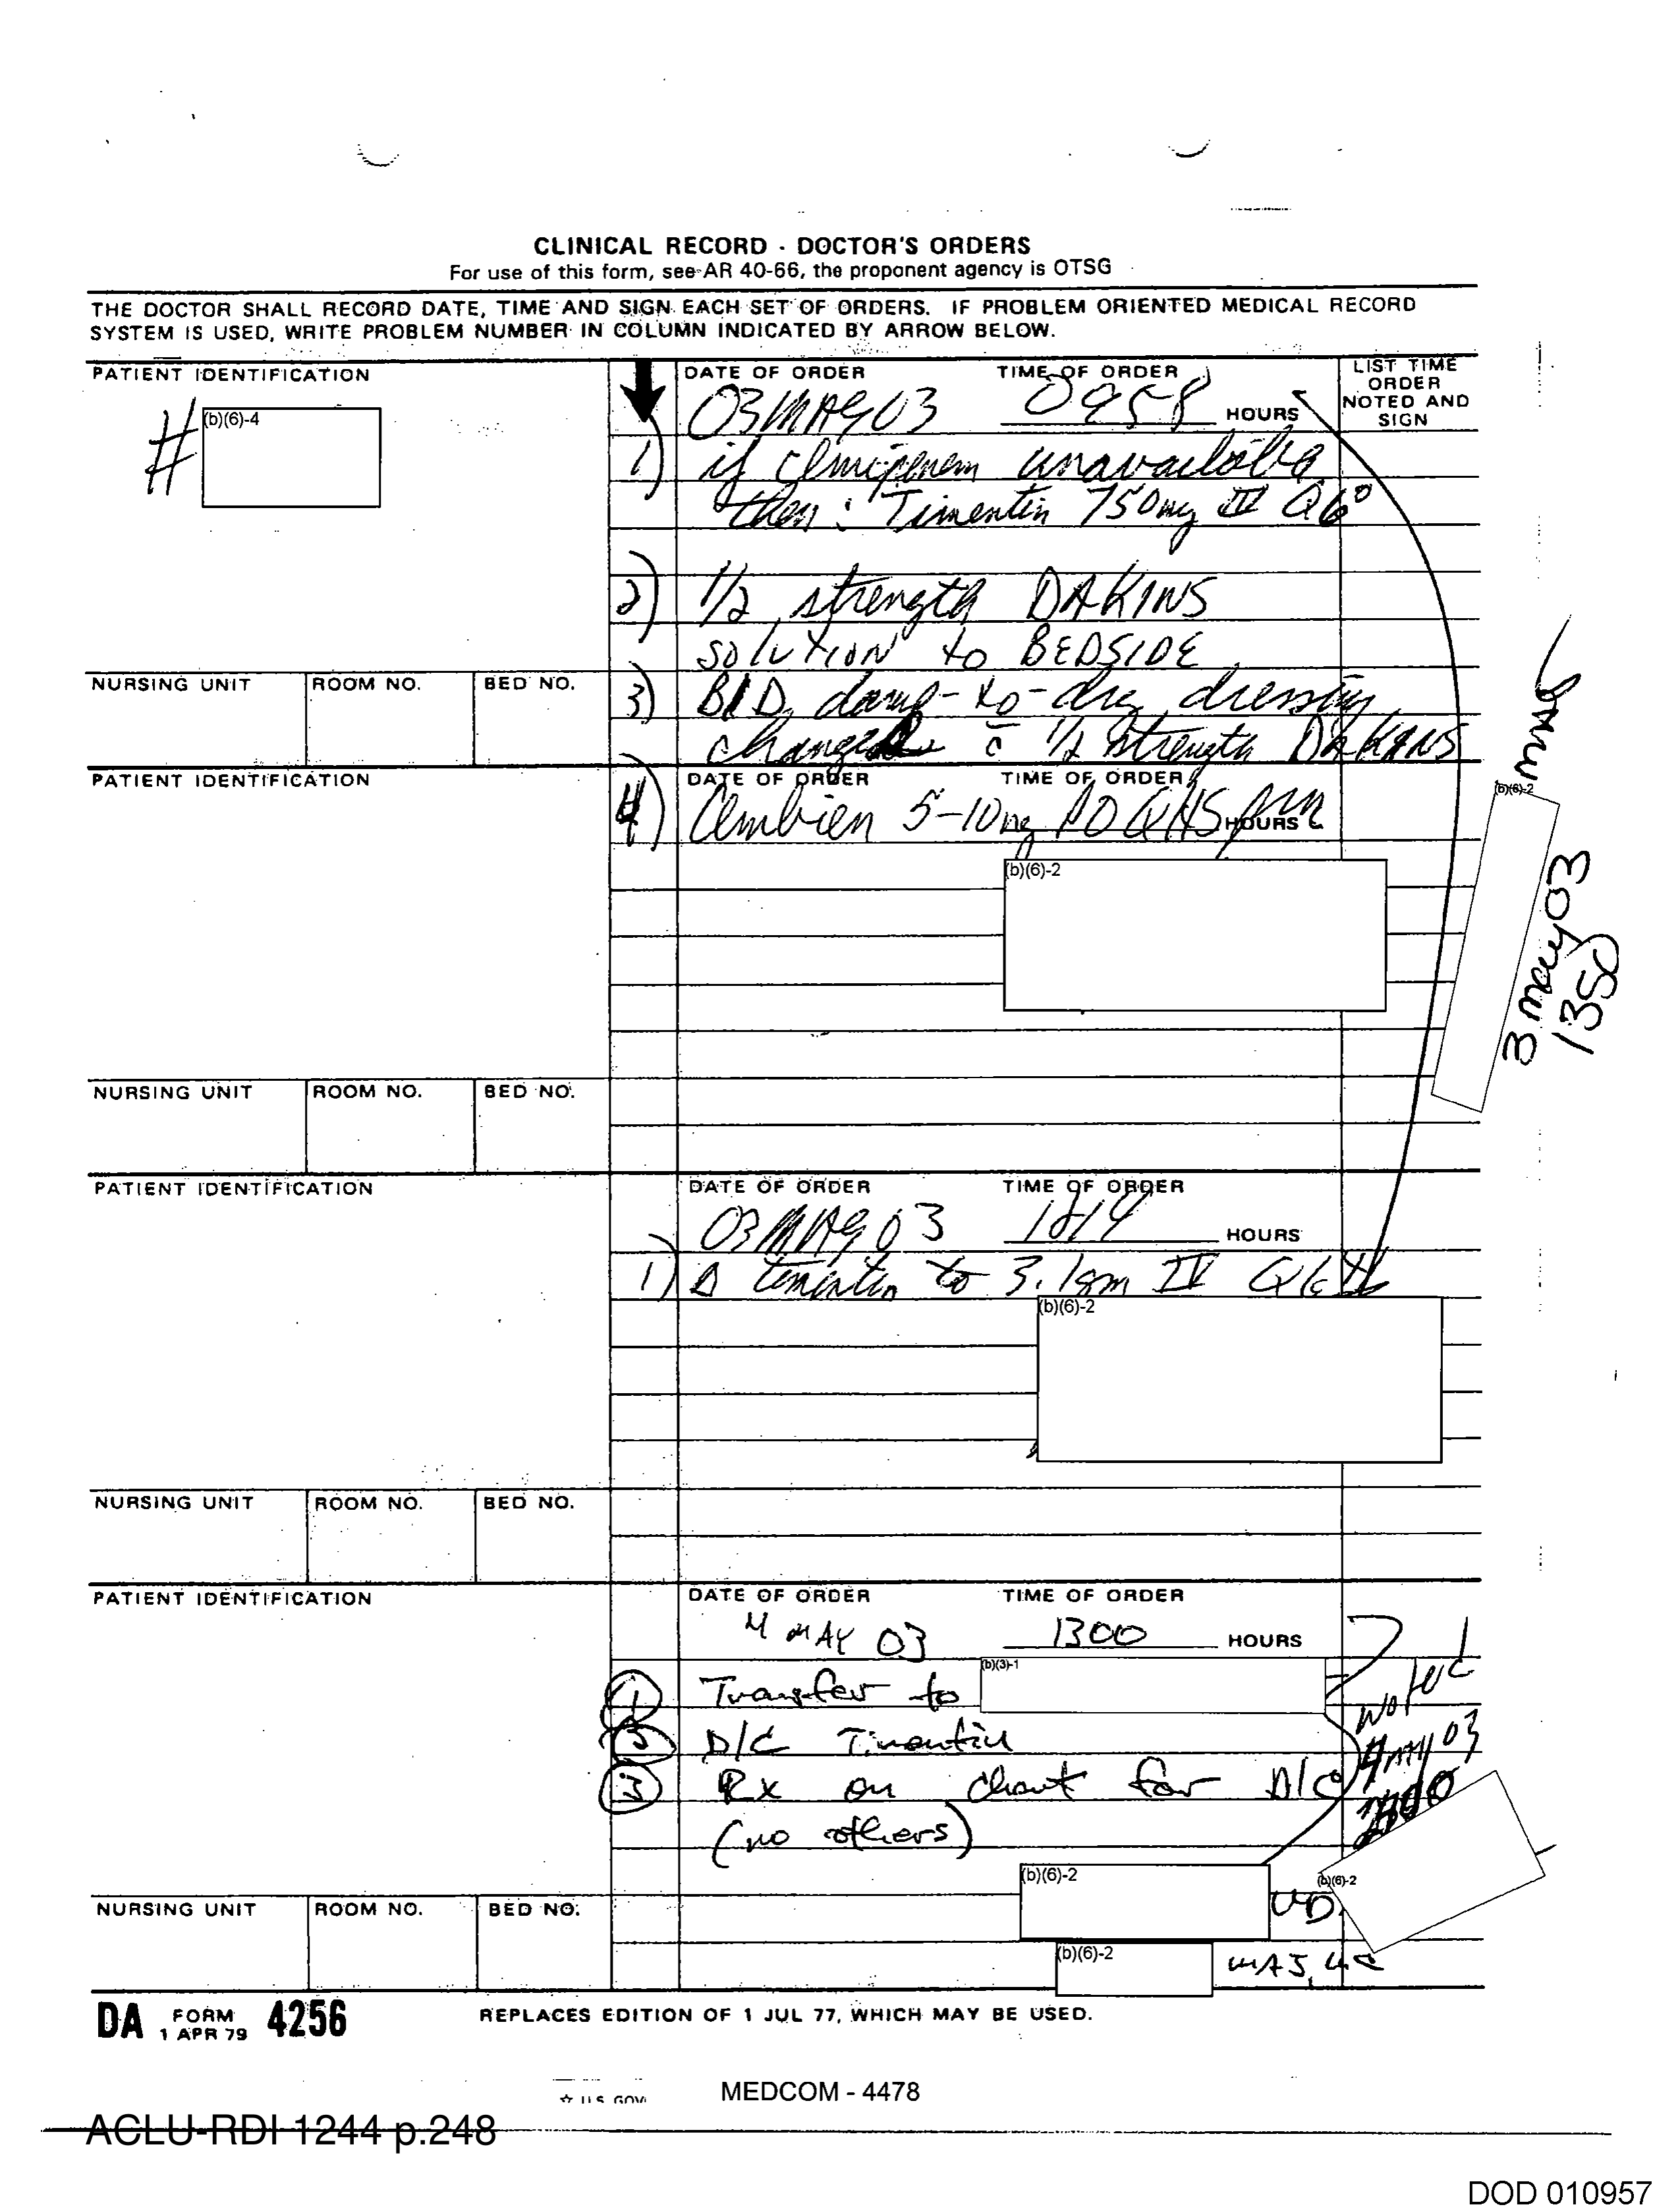 CLINICAL RECORD - DOCTOR'S ORDERS
For use of this form, see AR 40-66, the proponent agency is OTSG
THE DOCTOR SHALL RECORD DATE, TIME AND SIGN EACH SET OF ORDERS. IF PROBLEM ORIENTED MEDICAL RECORD
SYSTEM IS USED, WRITE PROBLEM NUMBER IN COLUMN INDICATED BY ARROW BELOW.
PATIENT IDENTIFICATION
# (b)(6)-4
DATE OF ORDER TIME OF ORDER
LIST TIME ORDER NOTED AND SIGN
03MAY03 0958 HOURS
1) if unavailable
then: Timentin 750mg IV Q6°
2) 1/2 strength DAKINS
SOLUTION to BEDSIDE
NURSING UNIT ROOM NO. BED NO.
3) BID damp-to-dry dressing
changes c̄ 1/2 strength DAKINS
PATIENT IDENTIFICATION
DATE OF ORDER TIME OF ORDER
HOURS
4) Ambien 5-10mg PO QHS prn
(b)(6)-2
(b)(6)-2
3 may 03
1350
NURSING UNIT ROOM NO. BED NO.
PATIENT IDENTIFICATION
DATE OF ORDER TIME OF ORDER
03MAY03 1814 HOURS
1) Δ timentin to 3.1gm IV Q6H
(b)(6)-2
NURSING UNIT ROOM NO. BED NO.
PATIENT IDENTIFICATION
DATE OF ORDER TIME OF ORDER
4 MAY 03 1300 HOURS
1 Transfer to (b)(3)-1
Noted
2 D/C Timentin
4 MAY 03
3 Rx on chart for D/C
(no others)
(b)(6)-2 MD
(b)(6)-2
(b)(6)-2 MAJ, MC
NURSING UNIT ROOM NO. BED NO.
DA FORM 4256
1 APR 79
REPLACES EDITION OF 1 JUL 77, WHICH MAY BE USED.
☆ U.S. GOV
MEDCOM - 4478
ACLU-RDI 1244 p.248
DOD 010957